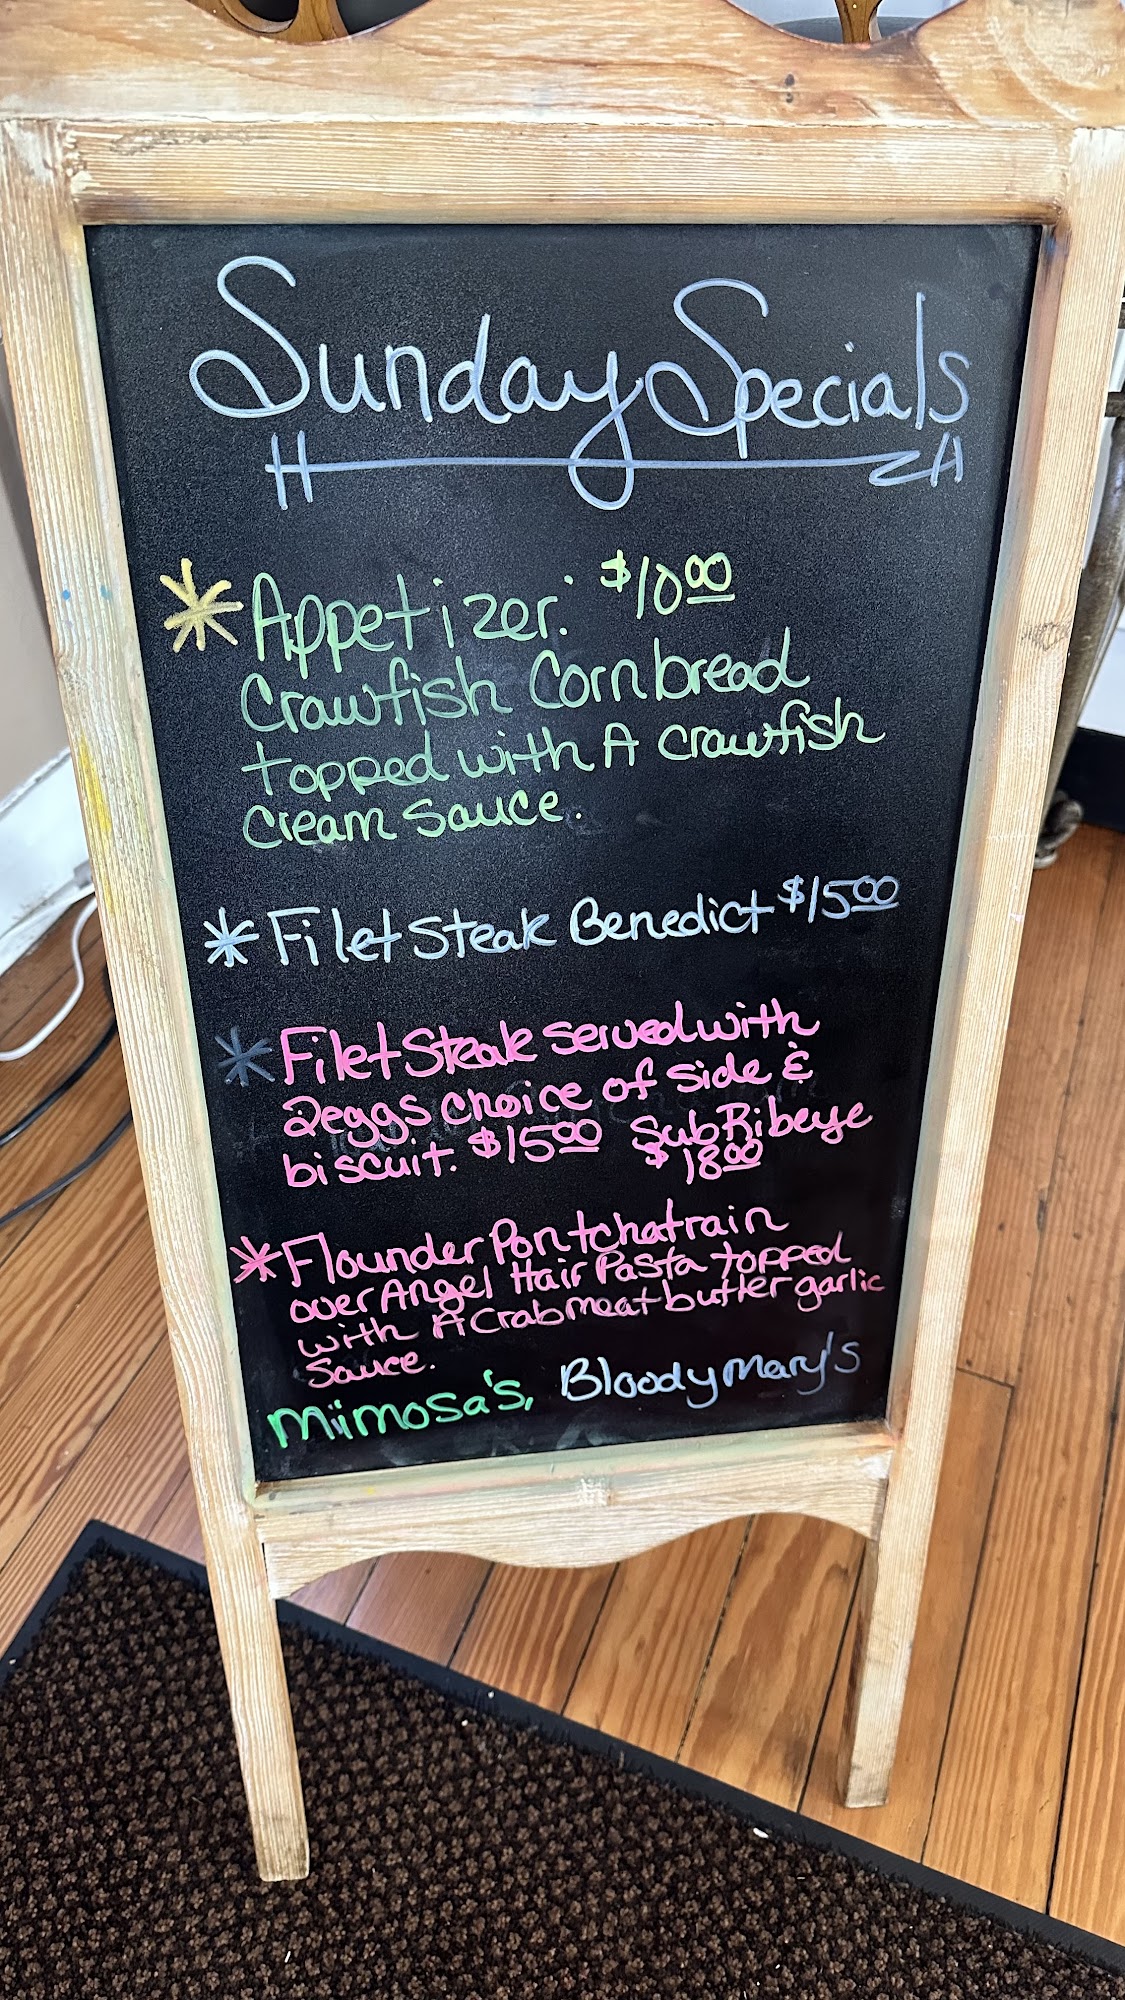 Sunday Specials
* Appetizer: $10.00
Crawfish Cornbread
topped with A crawfish
cream sauce.
* Filet Steak Benedict $15.00
* Filet Steak served with
2 eggs choice of side &
biscuit. $15.00 Sub Ribeye
$18.00
* Flounder Pontchatrain
over Angel Hair Pasta topped
with A Crabmeat butter garlic
Sauce.
Miimosa's, Bloody Mary's